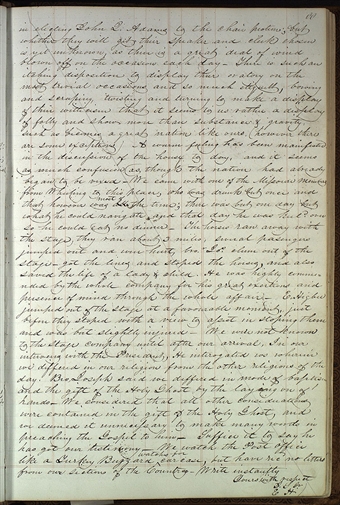 in electing John Q. Adams to the chair protem; but
whether they will get their speaker and clerk chosen
is yet unknown, as there is a great deal of wind
blown off on the occasion each day— There is such an
itching disposition to display their oratory on the
most trivial occasions, and so much etiquet, bowing
and scraping, twisting and turning, to make a display
of their witticism that it seems to us rather a display
of folly and show, more than substance & gravity,
such as becomes a great nation like ours (however there
are some exceptions) A warm feeling has been manifested
in the discussion of the house to day, and it seems
as much confusion as though the nation had already
began to be vexed. We came with one of the Missouri Members
from Wheeling to this place; who was drunk but once and
that however was most the time; there was but one day but
what he could navigate, and that day he was keeled over
so he could eat no dinner— The horses ran away with
the stage; they ran about 3 miles; several passengers
jumped out and were hurt, bro Jos clum out of the
stage got the lines, and stoped the horses, and also
saved the life of a lady & child. He was highly commen
nded by the whole company for his great exertions and
presence of mind through the whole affair— E. Higbee
jumped out of the stage at a favourable moment, just
before they stoped with a view to assist in stoping them
and was but slightly injured— We were not known
to the stage company until after our arrival. In our
interview with the President, He interrogated us wherein
we differed in our religion from the other religions of the
day, Bro Joseph said we differed in mode of baptism
and the gift of the Holy Ghost by the laying on of
hands— We considered that all other considerations
were contained in the gift of the Holy Ghost, and
we deemed it unnecessary to make many words in
preaching the Gospel to him— Suffice it to say he
has got our testimony— We watch the Post Office
like a Turkey Buzzard watches for carcass, but have rec'd no letters
from our sections of the Country— Write instantly
Yours with respect
J. S.
E. H.